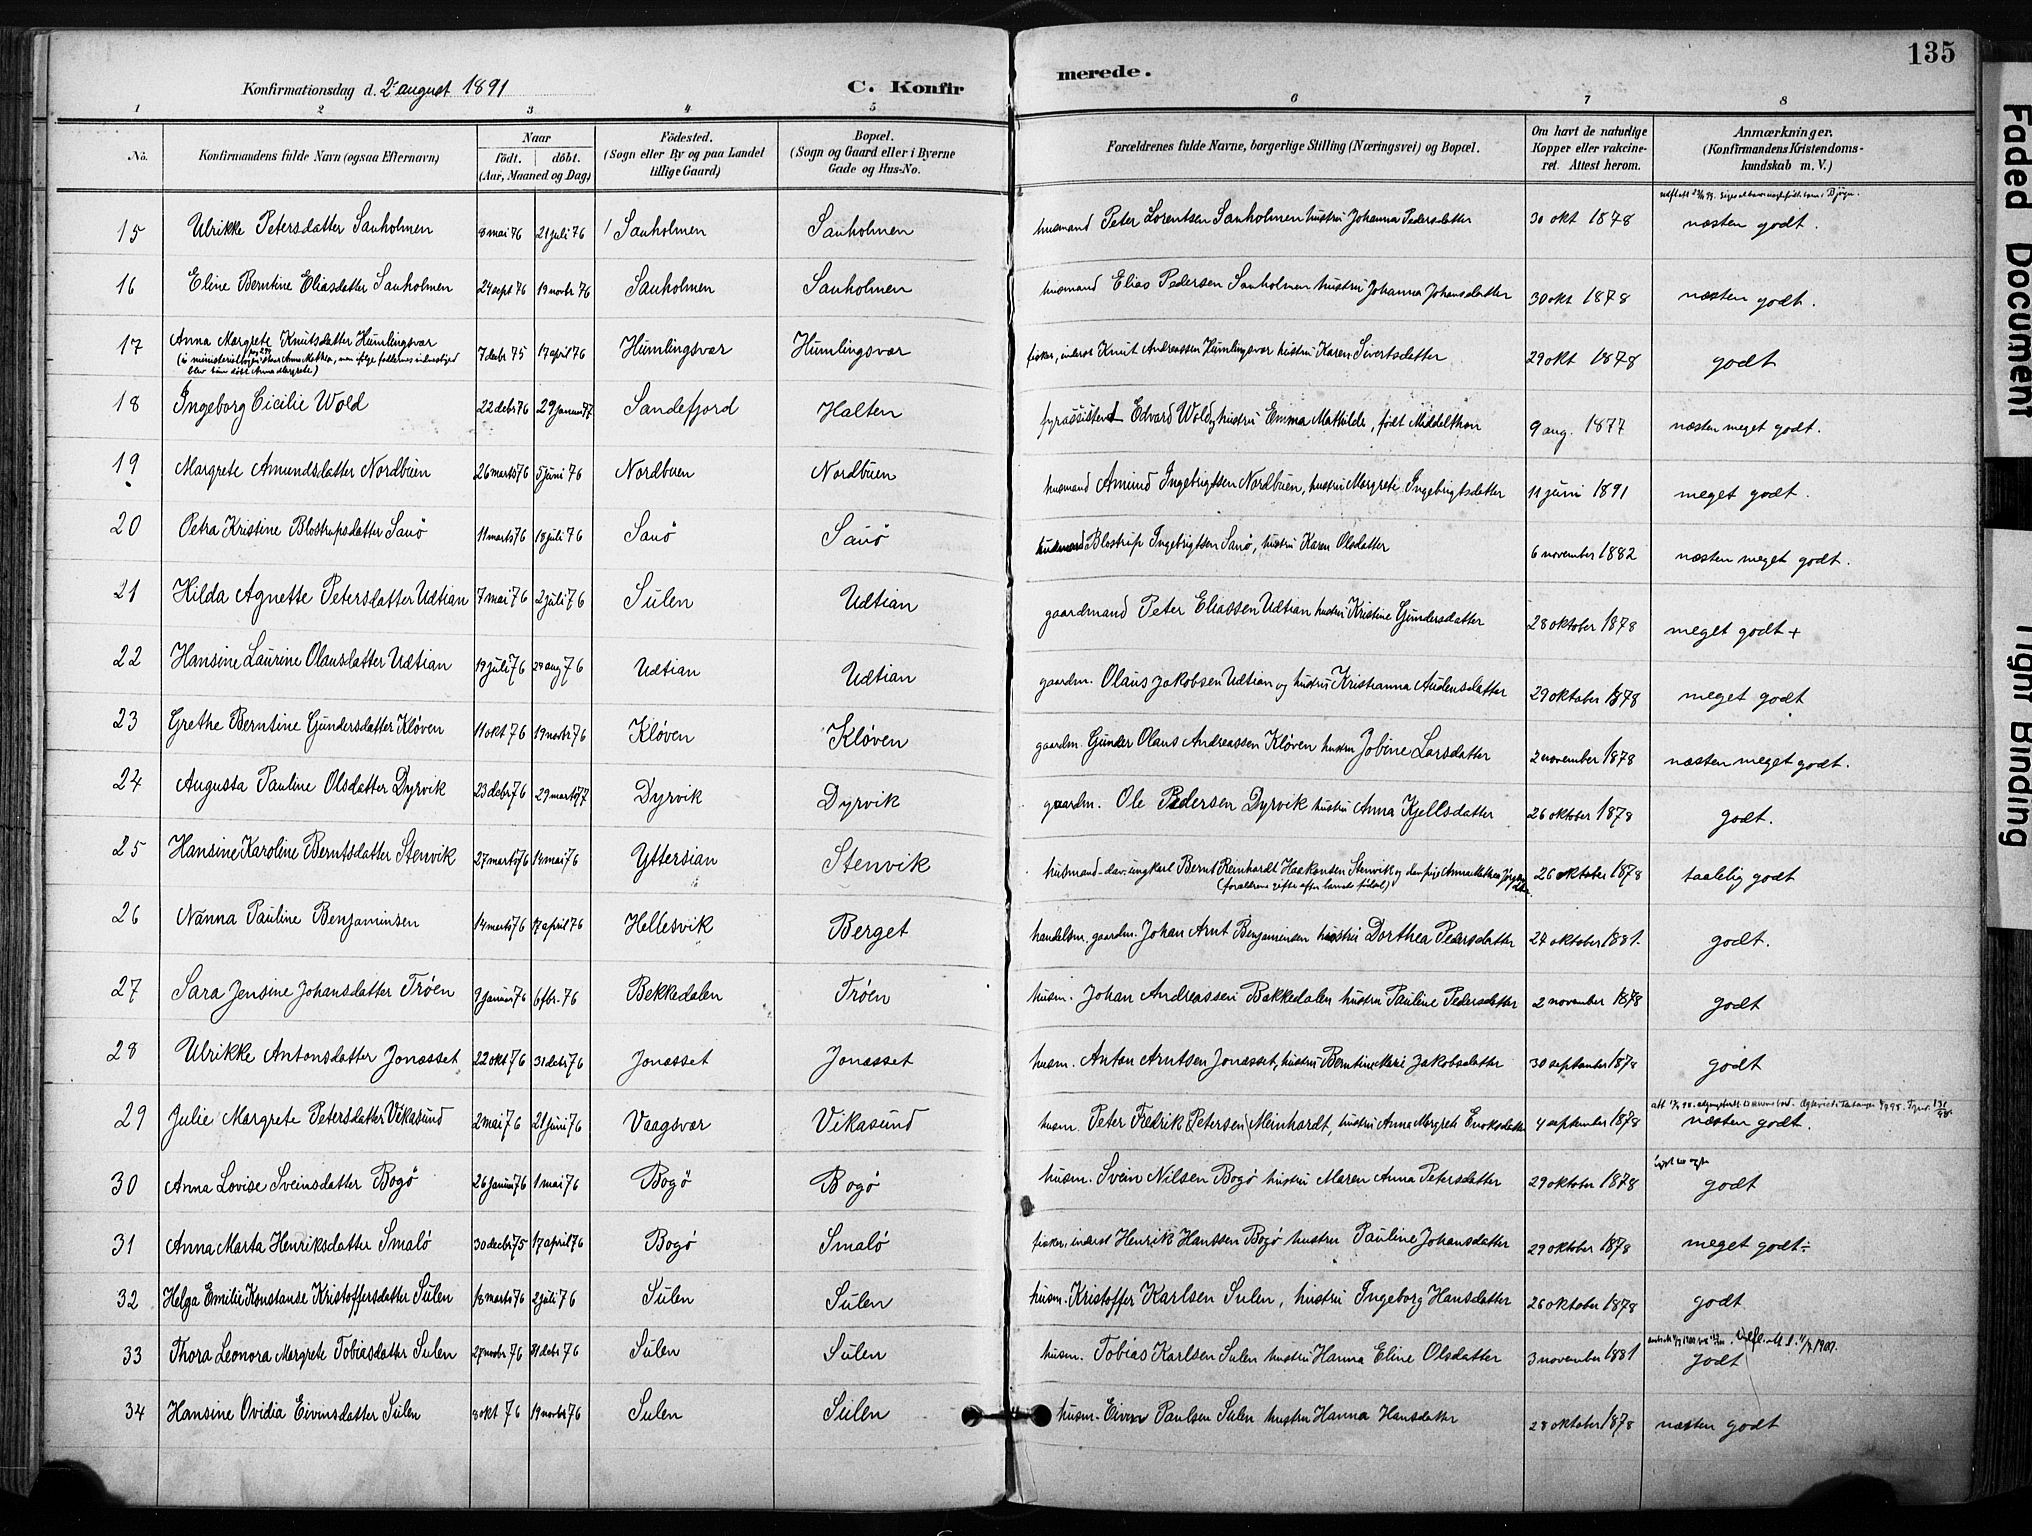 135
Konfirmationsdag d. 2 august 1891
C. Konfirmerede.
1 2 3 4 5 6 7 8
No. Konfirmandens fulde Navn (ogsaa Efternavn) Naar födt. döbt. (Aar, Maaned og Dag) Födested. (Sogn eller By og paa Landet tillige Gaard) Bopæl. (Sogn og Gaard eller i Byerne Gade og Hus-No. Forældrenes fulde Navne, borgerlige Stilling (Næringsvei) og Bopæl. Om havt de naturlige Kopper eller vakcineret. Attest herom. Anmærkninger. (Konfirmandens Kristendomskundskab m. V.)
15 Ulrikke Petersdatter Sauholmen 8 mai 76 21 juli 76 Sauholmen Sauholmen husmand Peter Lorentsen Sauholmen hustru Johanna Pedersdatter 30 okt 1878 næsten godt.
16 Eline Berntine Eliasdatter Sauholmen 24 sept 76 19 novbr 76 Sauholmen Sauholmen husmand Elias Pedersen Sauholmen hustru Johanna Johansdatter 30 okt 1878 næsten godt.
17 Anna Margrete Knutsdatter Humlingsvær 7 decbr 75 17 april 76 Humlingsvær Humlingsvær fisker, inderst Knut Andreassen Humlingsvær hustru Karen Sivertsdatter 29 okt 1878 godt
blev hun døbt Anna Margrete)
18 Ingeborg Cicilie Wold 22 debr 76 29 januar 77 Sandefjord Halten fyrassistent Edvard Wold og hustru Emma Mathilde, født Middelthon 9 aug. 1877 næsten meget godt.
19 Margrete Amundsdatter Nordbuen 26 marts 76 5 juni 76 Nordbuen Nordbuen husmand Amund Ingebrigtsen Nordbuen, hustru Margrete Ingebrigtsdatter 11 juni 1891 meget godt.
20 Petra Kristine Blostrupsdatter Sauø 11 marts 76 18 juli 76 Sauø Sauø husmand Blostrup Ingebrigtsen Sauø, hustru Karen Olsdatter 6 november 1882 næsten meget godt.
21 Hilda Agnette Petersdatter Udtian 7 mai 76 2 juli 76 Sulen Udtian gaardmand Peter Eliassen Udtian hustru Kristine Gundersdatter 28 oktober 1878 meget godt +
22 Hansine Laurine Olausdatter Udtian 19 juli 76 29 aug 76 Udtian Udtian gaardm. Olaus Jakobsen Udtian og hustru Kristianna Audensdatter 29 oktober 1878 meget godt
23 Grethe Berntine Gundersdatter Kløven 11 okt 76 19 novbr 76 Kløven Kløven gaardm. Gunder Olaus Andreassen Kløven hustru Jobine Larsdatter 2 november 1878 næsten meget godt.
24 Augusta Pauline Olsdatter Dyrvik 23 debr 76 29 marts 77 Dyrvik Dyrvik gaardm. Ole Pedersen Dyrvik hustru Anna Kjellsdatter 26 oktober 1878 godt.
25 Hansine Karoline Berntsdatter Stenvik 27 marts 76 14 mai 76 Yttersian Stenvik husmand - dav. ungkarl Bernt Reinhardt Haakensen Stenvik og den pige Anna Mathea 26 oktober 1878 taalelig godt
(forældrene gifte efter barnets fødsel)
26 Nanna Pauline Benjaminsen 14 marts 76 17 april 76 Hellesvik Berget handelsm, gaardm. Johan Arnt Benjaminsen hustru Dorthea Pedersdatter 24 oktober 1881. godt.
27 Sara Jensine Johansdatter Trøen 9 januar 76 6 fbr. 76 Bekkedalen Trøen husm. Johan Andreassen Bakkedalen hustru Pauline Pedersdatter 2 november 1878 godt
28 Ulrikke Antonsdatter Jonasset 22 okt 76 31 debr 76 Jonasset Jonasset husm. Anton Arntsen Jonasset, hustru Berntine Marie Jakobsdatter 30 september 1878 godt
29 Julie Margrete Petersdatter Vikasund 2 mai 76 21 juni 76 Vaagsvær Vikasund husm. Peter Fredrik (Petersen) Meinhardt, hustru Anna Margrete Enoksdatter 4 september 1878 næsten godt.
30 Anna Lovise Sveinsdatter Bogø 26 januar 76 1 mai 76 Bogø Bogø husm. Svein Nilsen Bogø hustru Maren Anna Petersdatter 29 oktober 1878 godt
31 Anna Marta Henriksdatter Smalø 30 decbr 75 17 april 76 Bogø Smalø fisker, inderst Henrik Hanssen Bogø hustru Pauline Johansdatter 29 oktober 1878 meget godt ÷
32 Helga Emilie Konstanse Kristoffersdatter Sulen 18 marts 76 2 juli 76 Sulen Sulen husm. Kristoffer Karlsen Sulen, hustru Ingeborg Hansdatter 26 oktober 1878 godt
33 Thora Leonora Margrete Tobiasdatter Sulen 27 novbr 76 31 debr 76 Sulen Sulen husm. Tobias Karlsen Sulen hustru Hanna Eline Olsdatter 3 november 1881 godt
34 Hansine Ovidia Eivinsdatter Sulen 8 okt 76 19 novbr 76 Sulen Sulen husm. Eivin Paulsen Sulen hustru Hanna Hansdatter 28 oktober 1878 næsten godt
Faded Document
Tight Binding